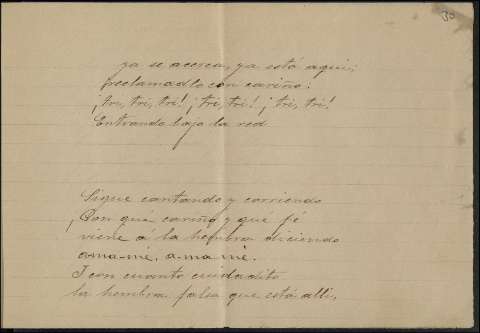 30
ya se acerca, ya está aqui;
reclamadlo con cariño.
¡tri, tri, tri! ¡tri, tri! ¡tri, tri!
Entrando bajo la red
Sigue cantando y corriendo
¡Con qué cariño y qué fé
viene á la hembra diciendo
a-ma-mé, a-ma mé.
I con cuanto cuidadito
la hembra falsa que está alli,